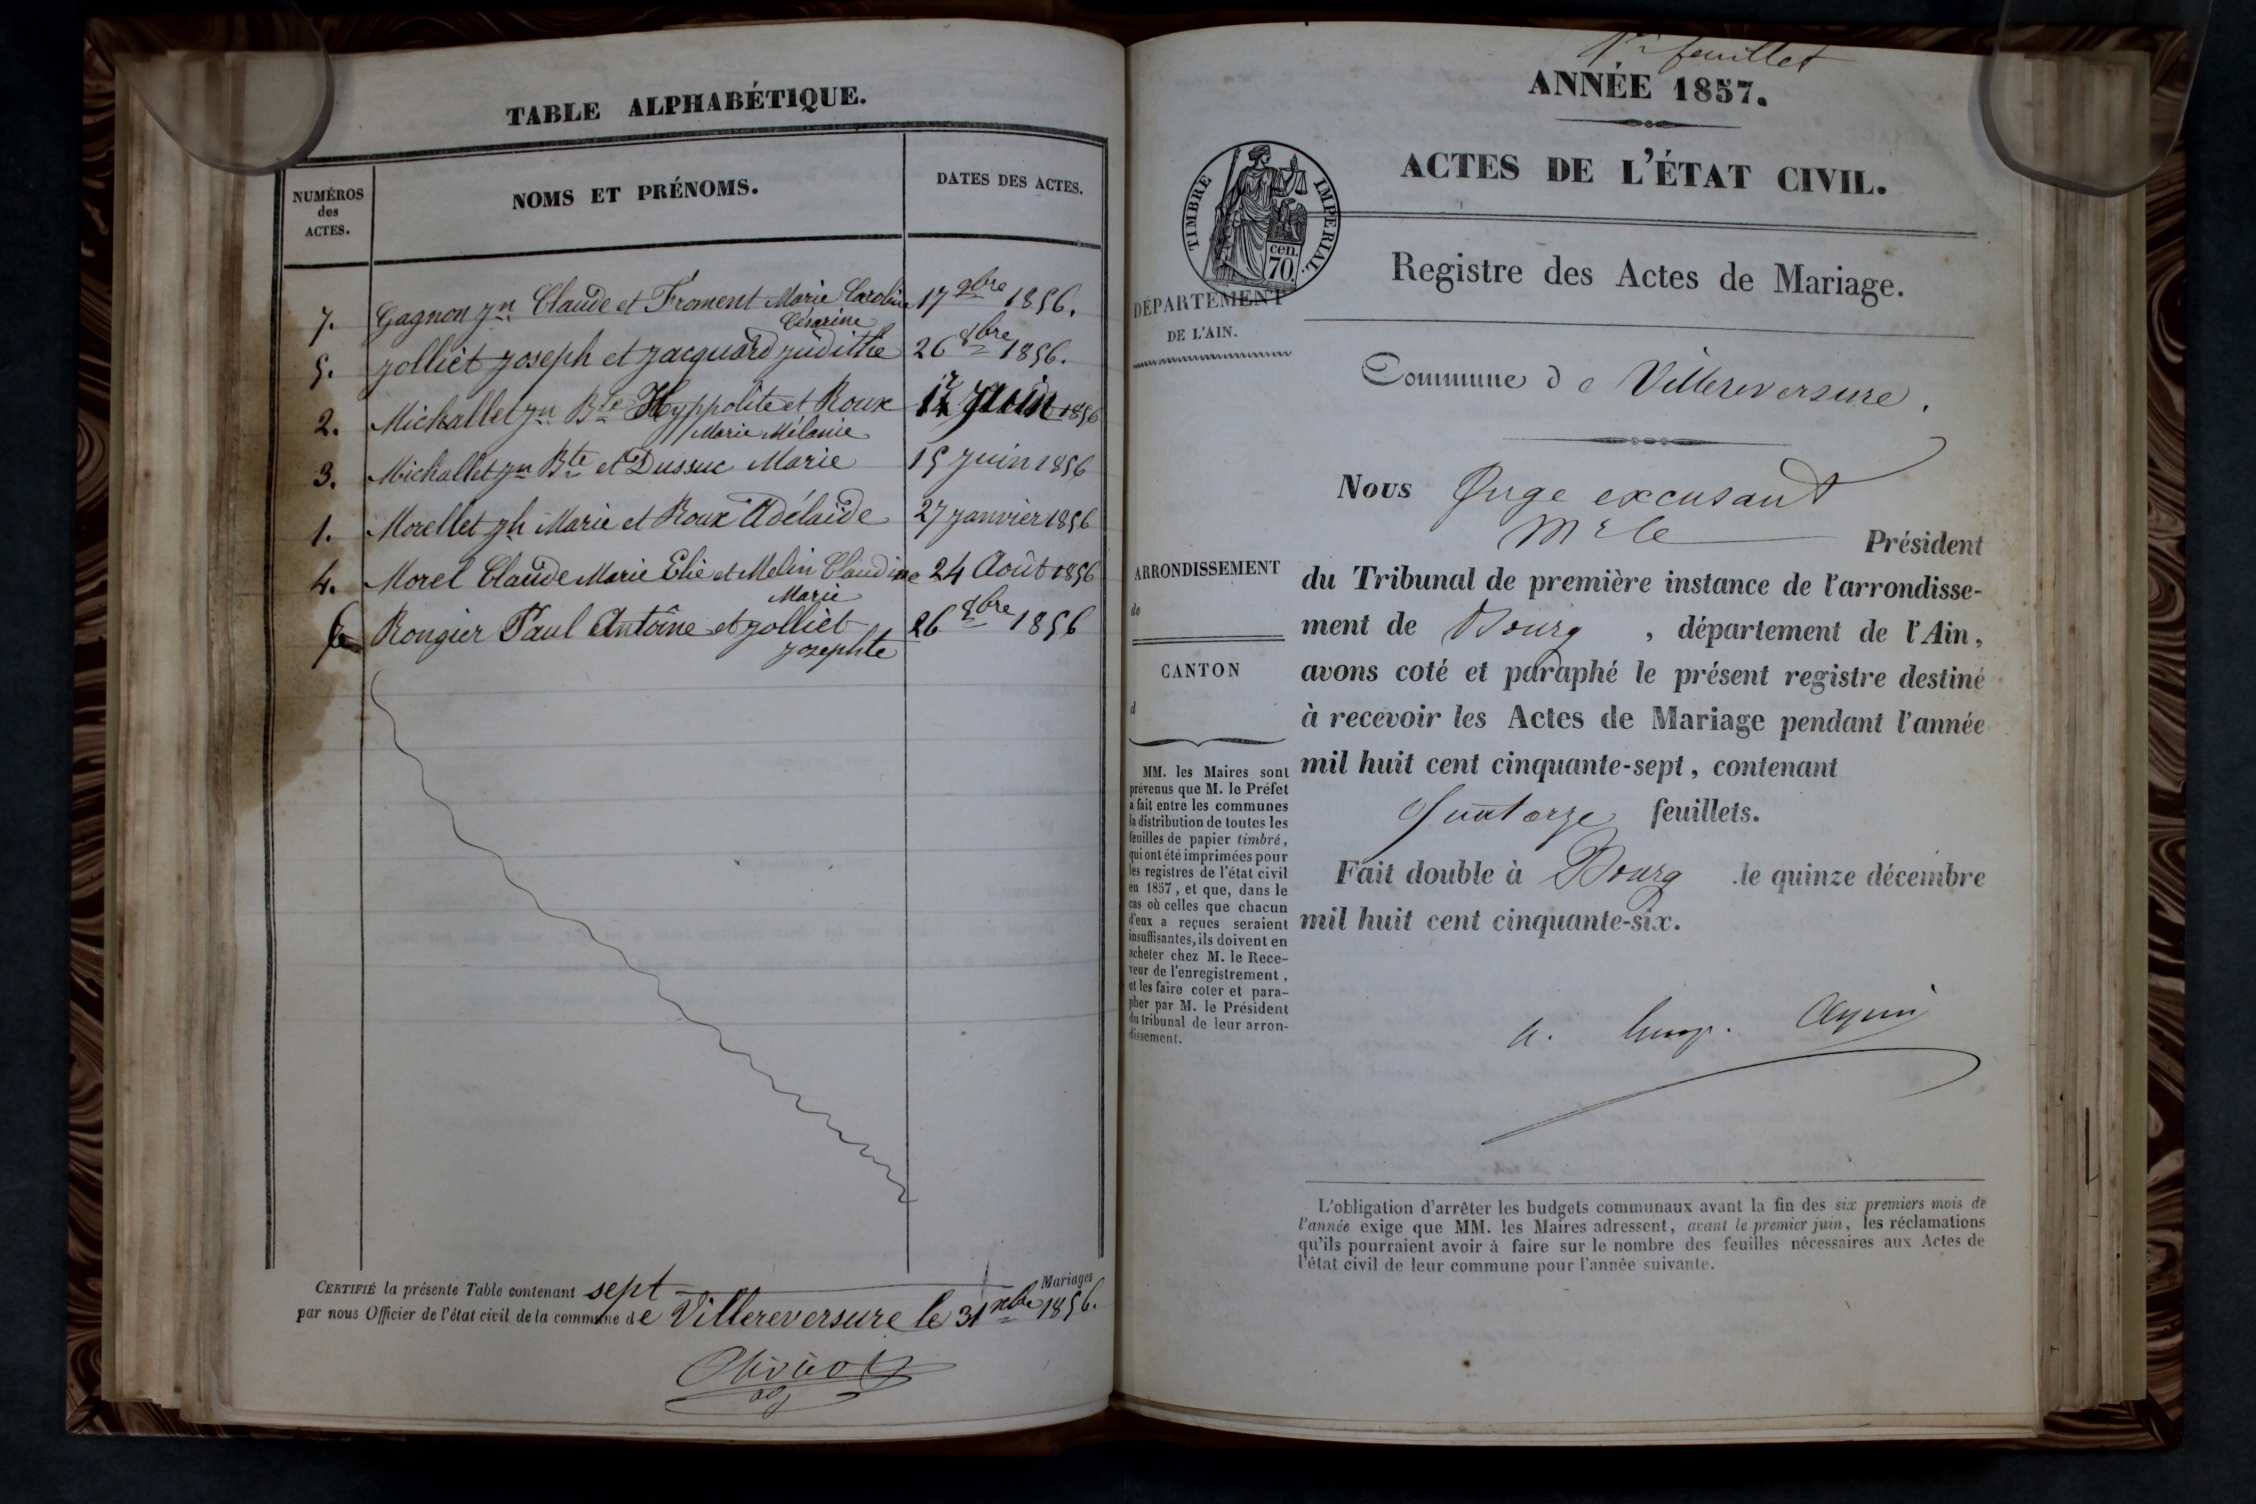 TABLE ALPHABÉTIQUE.
NUMÉROS
des
ACTES.
NOMS ET PRÉNOMS.
DATES DES ACTES.
7. Gagnon Jn Claude et Froment Marie Caroline 17 9bre 1856.
Césarine
5. Jolliet Joseph et Jacquard Judithe 26 8bre 1856.
2. Michallet Jn Bte Hyppolite et Roux 12 Juin 1856
Marie Mélanie
3. Michallet Jn Bte et Dussuc Marie 15 Juin 1856
1. Morellet Jh Marie et Roux Adélaïde 27 Janvier 1856
4. Morel Claude Marie Elie et Melin Claudine 24 Août 1856
Marie
6 Rongier Paul Antoine et Jolliet 26 8bre 1856
Josephte
CERTIFIÉ la présente Table contenant sept Mariages
par nous Officier de l'état civil de la commune de Villereversure le 31 xbre 1856.
1er feuillet
ANNÉE 1857.
ACTES DE L'ÉTAT CIVIL.
TIMBRE IMPERIAL.
cen.
70
DÉPARTEMENT
DE L'AIN.
Registre des Actes de Mariage.
Commune de Villereversure.
Nous Juge excusant
Mr le Président
du Tribunal de première instance de l'arrondisse-
ment de Bourg, département de l'Ain,
avons coté et paraphé le présent registre destiné
à recevoir les Actes de Mariage pendant l'année
mil huit cent cinquante-sept, contenant
Quatorze feuillets.
Fait double à Bourg le quinze décembre
mil huit cent cinquante-six.
ARRONDISSEMENT
de
CANTON
d
MM. les Maires sont
prévenus que M. le Préfet
a fait entre les communes
la distribution de toutes les
feuilles de papier timbré,
qui ont été imprimées pour
les registres de l'état civil
en 1857, et que, dans le
cas où celles que chacun
d'eux a reçues seraient
insuffisantes, ils doivent en
acheter chez M. le Rece-
veur de l'enregistrement,
et les faire coter et para-
pher par M. le Président
du tribunal de leur arron-
dissement.
L'obligation d'arrêter les budgets communaux avant la fin des six premiers mois de
l'année exige que MM. les Maires adressent, avant le premier juin, les réclamations
qu'ils pourraient avoir à faire sur le nombre des feuilles nécessaires aux Actes de
l'état civil de leur commune pour l'année suivante.